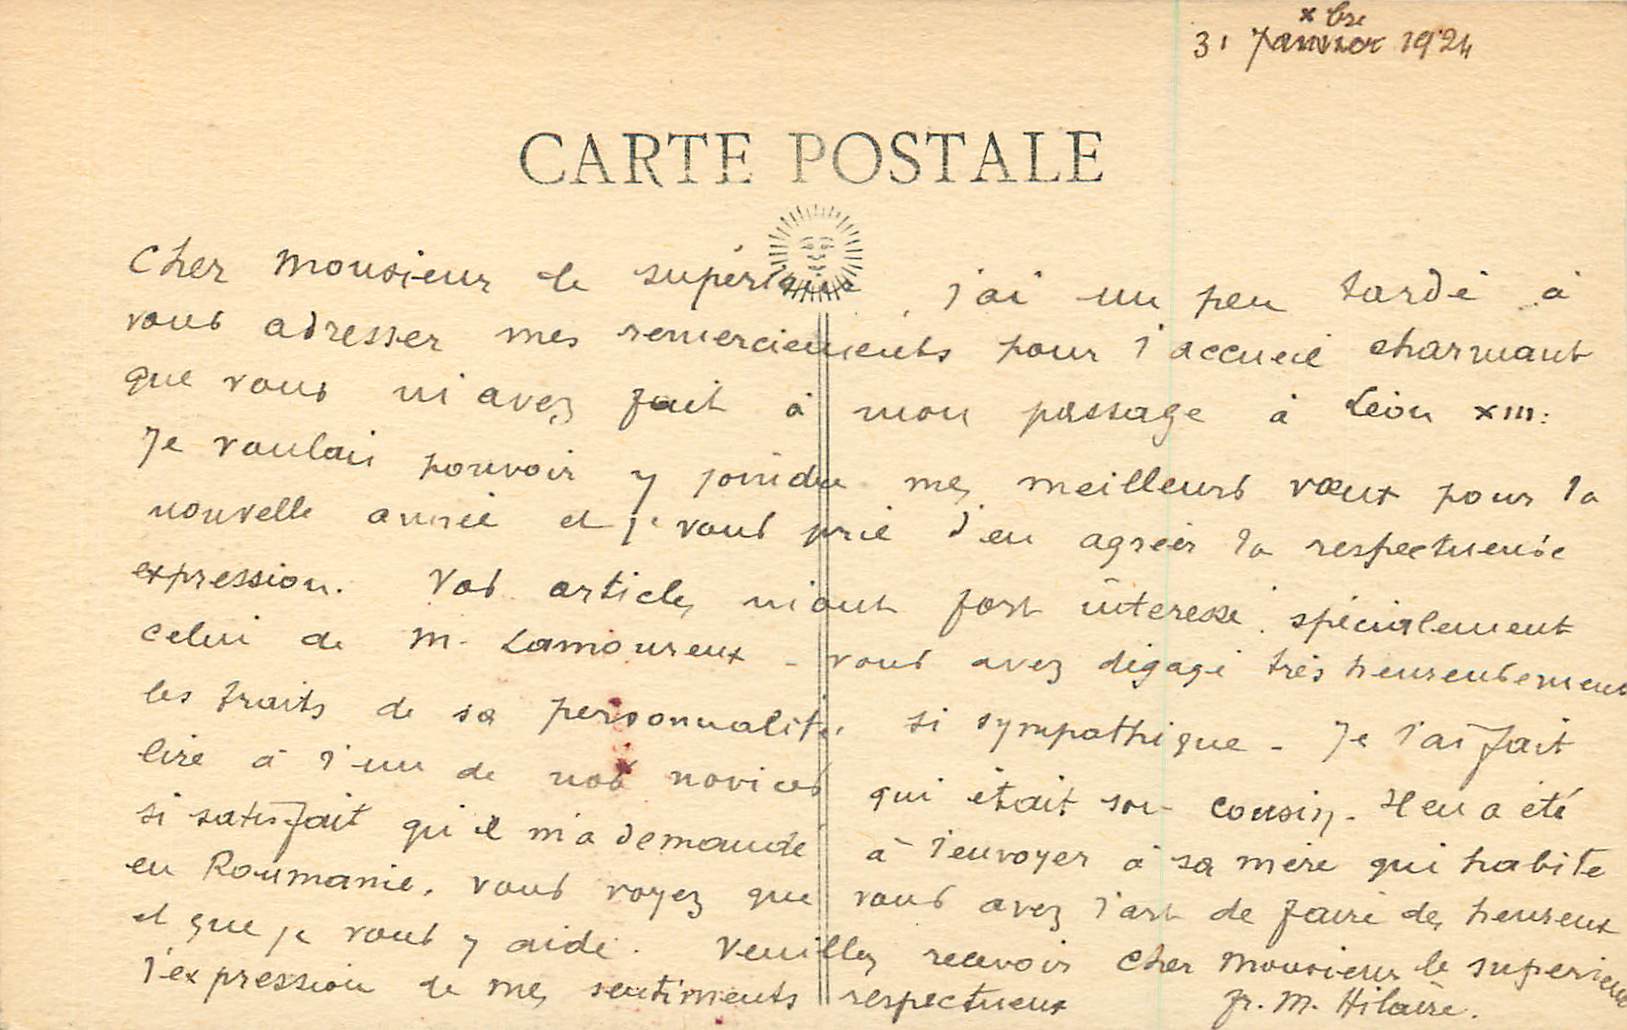 xbre
31 Janvier 1924
CARTE POSTALE
Cher Monsieur le supérieur, j'ai un peu tardé à
vous adresser mes remerciements pour l'accueil charmant
que vous m'avez fait à mon passage à Léon XIII.
Je voulais pouvoir y joindre mes meilleurs vœux pour la
nouvelle année et je vous prie d'en agréer la respectueuse
expression. Vos articles m'ont fort intéressé, spécialement
celui de M. Lamoureux - vous avez dégagé très heureusement
les traits de sa personnalité si sympathique - Je l'ai fait
lire à l'un de nos novices qui était son cousin. Il en a été
si satisfait qu'il m'a demandé à l'envoyer à sa mère qui habite
en Roumanie. Vous voyez que vous avez l'art de faire des heureux
et que je vous y aide. Veuillez recevoir Cher Monsieur le supérieur
l'expression de mes sentiments respectueux
fr. M. Hilaire.